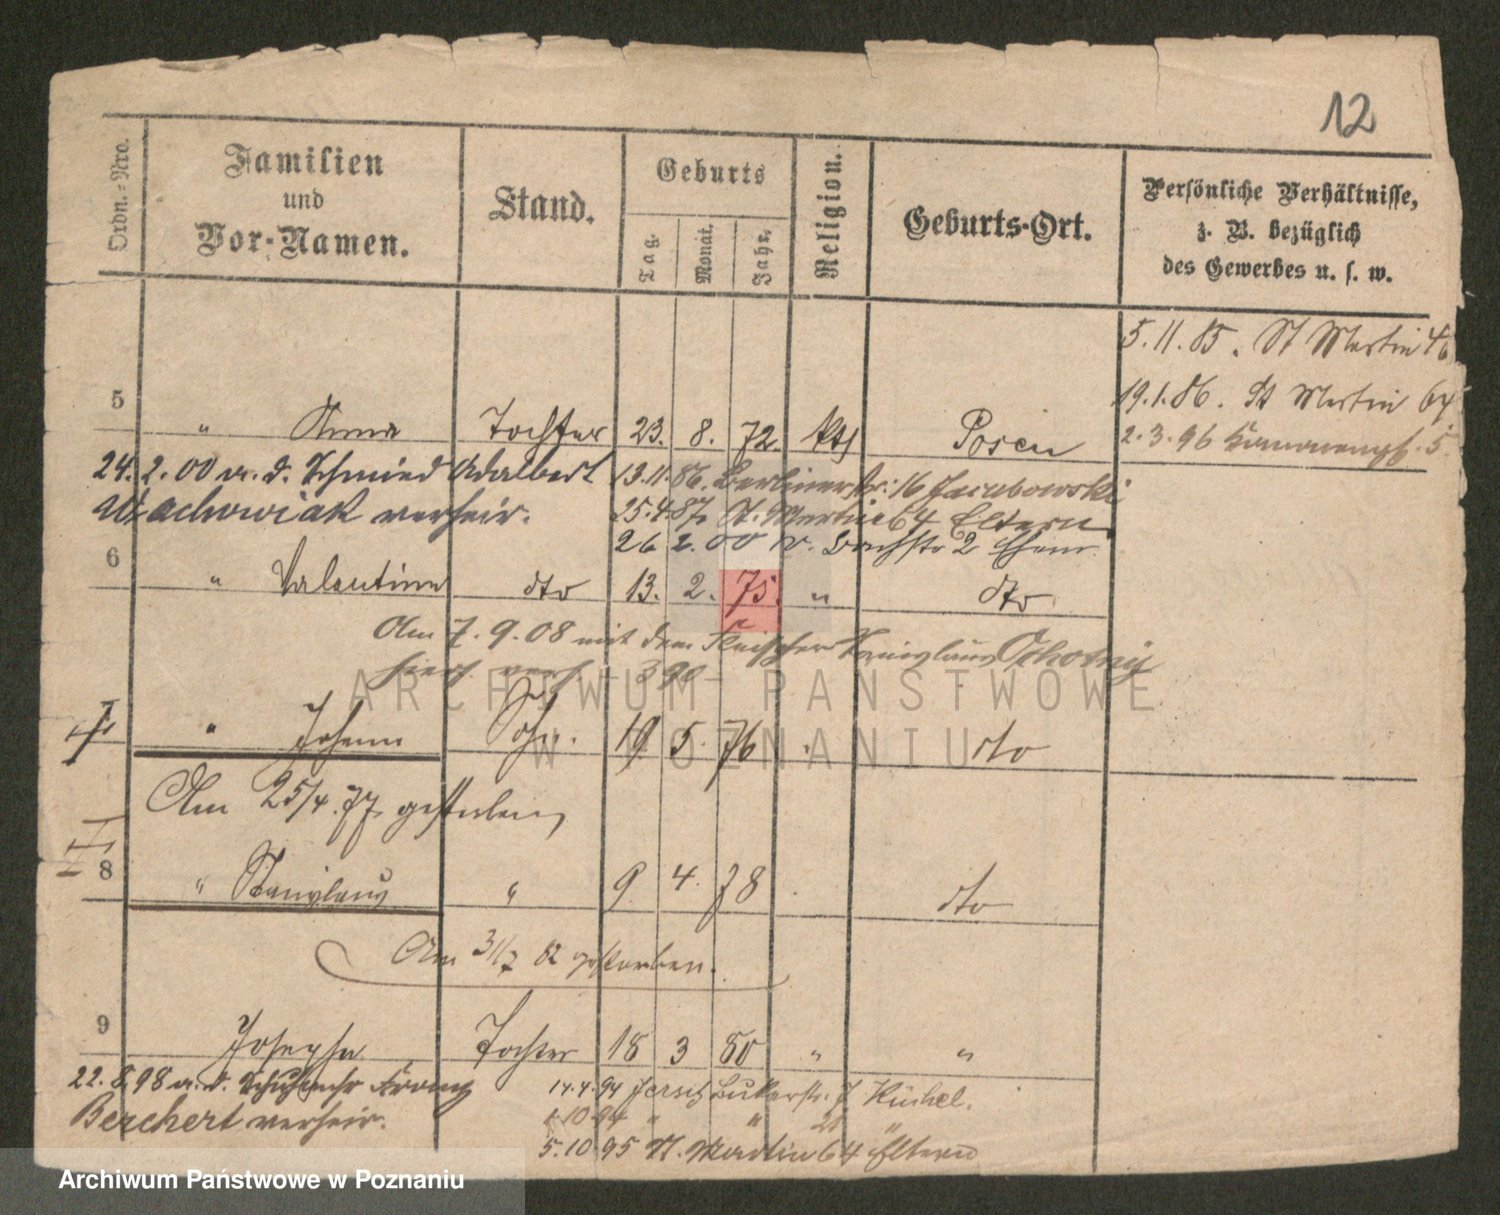 12
Ordn.-Nro.
Familien
und
Vor-Namen.
Stand.
Geburts
Tag.
Monat.
Jahr.
Religion.
Geburts-Ort.
Persönliche Verhältnisse,
z. B. bezüglich
des Gewerbes u. s. w.
5.11.85. St Martin 46
19.1.86. St Martin 64
2.3.96 5
5 " Anna Tochter 23. 8. 72. kth Posen
24. 2. 00 a. d. Schmied Adalbert
Wachowiak verheir.
13.11.86. Berlinerstr: 16 Jacubowski
25.4.87. St. Martin 64 Eltern
26 2. 00 v. Bachstr 2
6 " Valentine dto 13. 2. 75. " dto
Am 7. 9. 08 mit dem Fleischer Stanislaus
hier verh. 390
" Johann Sohn. 19. 5. 76 dto
Am 25/4. 77 gestorben
8 " Stanislaus " 9. 4. 78 dto
Am 31/7 82 gestorben.
9 Josepha Tochter 18 3 80 " "
22. 8. 98 a. d. Schuhm. Franz
Berchert verheir.
14.4.94 Jersitz Bukerstr. 7
1.10.94 " " "
5.10.95 St. Martin 64 Eltern
ARCHIWUM PAŃSTWOWE
W POZNANIU
Archiwum Państwowe w Poznaniu